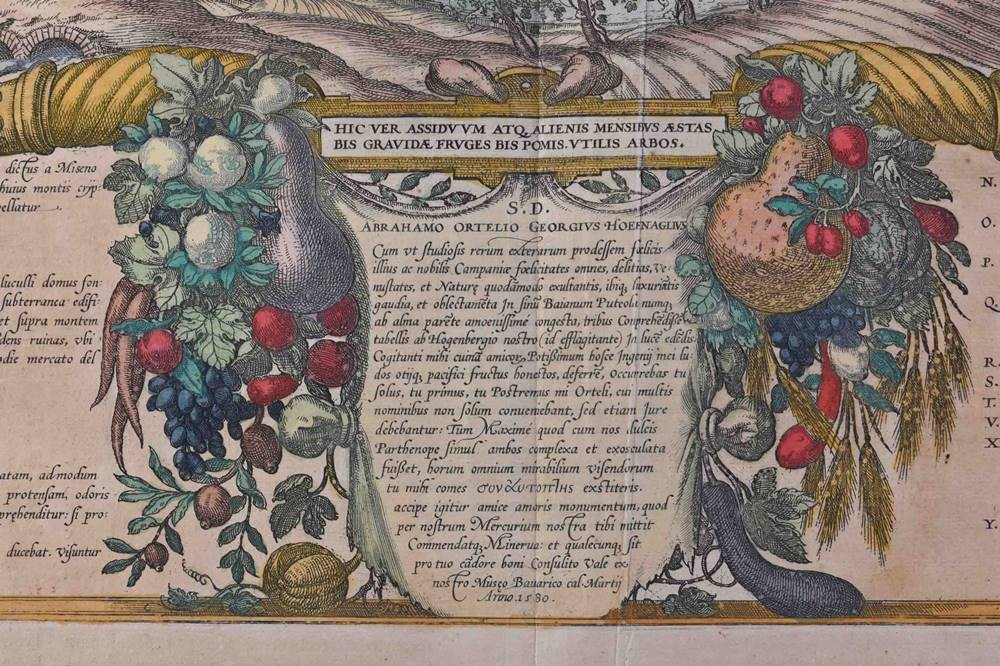 HIC VER ASSIDVVM ATQ, ALIENIS MENSIBVS ÆSTAS
BIS GRAVIDÆ FRVGES BIS POMIS VTILIS ARBOS.
S. D.
ABRAHAMO ORTELIO GEORGIVS HOEFNAGLIVS
Cum vt studiosis rerum exterarum prodessem fœlicis
illius ac nobilis Campaniæ fœlicitates omnes, delitias, Ve-
nustates, et Naturę quodāmodo exultantis, ibiq, luxuriātis
gaudia, et oblectamēta In sinū Baianum Puteola numq,
ab alma parēte amoenissimé congesta, tribus Comprehēdisse
tabellis ab Hogenbergio nostro (id efflagitante) In lucē edēdis
Cogitanti mihi cuinā amicor, Potissimum hosce Ingenij mei lu
dos otijq, pacifici fructus honestos, deferrē, Occurrebas tu
solus, tu primus, tu Postremus mi Orteli, cui multis
nominibus non solum conueniebant, sed etiam Jure
debebantur: Tum Maximé quod cum nos dulcis
Parthenope simul ambos complexa et exosculata
fuisset, horum omnium mirabilium visendorum
tu mihi comes exstiteris.
accipe igitur amice amoris monumentum, quod
per nostrum Mercurium nostra tibi mittit
Commendatq, Minerua: et qualecunq, sit
pro tuo cādore boni Consulito Vale ex
nostro Museo Bauarico cal Martij
Anno. 1580.
dictus a Miseno
huius montis cryp:
pellatur
luculli domus fon-
subterranea edifi-
et supra montem
dens ruinas, vbi
odie mercato del
atam, admodum
protensam, odoris
prehenditur: si pro:
ducebat. Visuntur
N.
O.
P.
Q
R.
S.
T.
V.
X
Y.